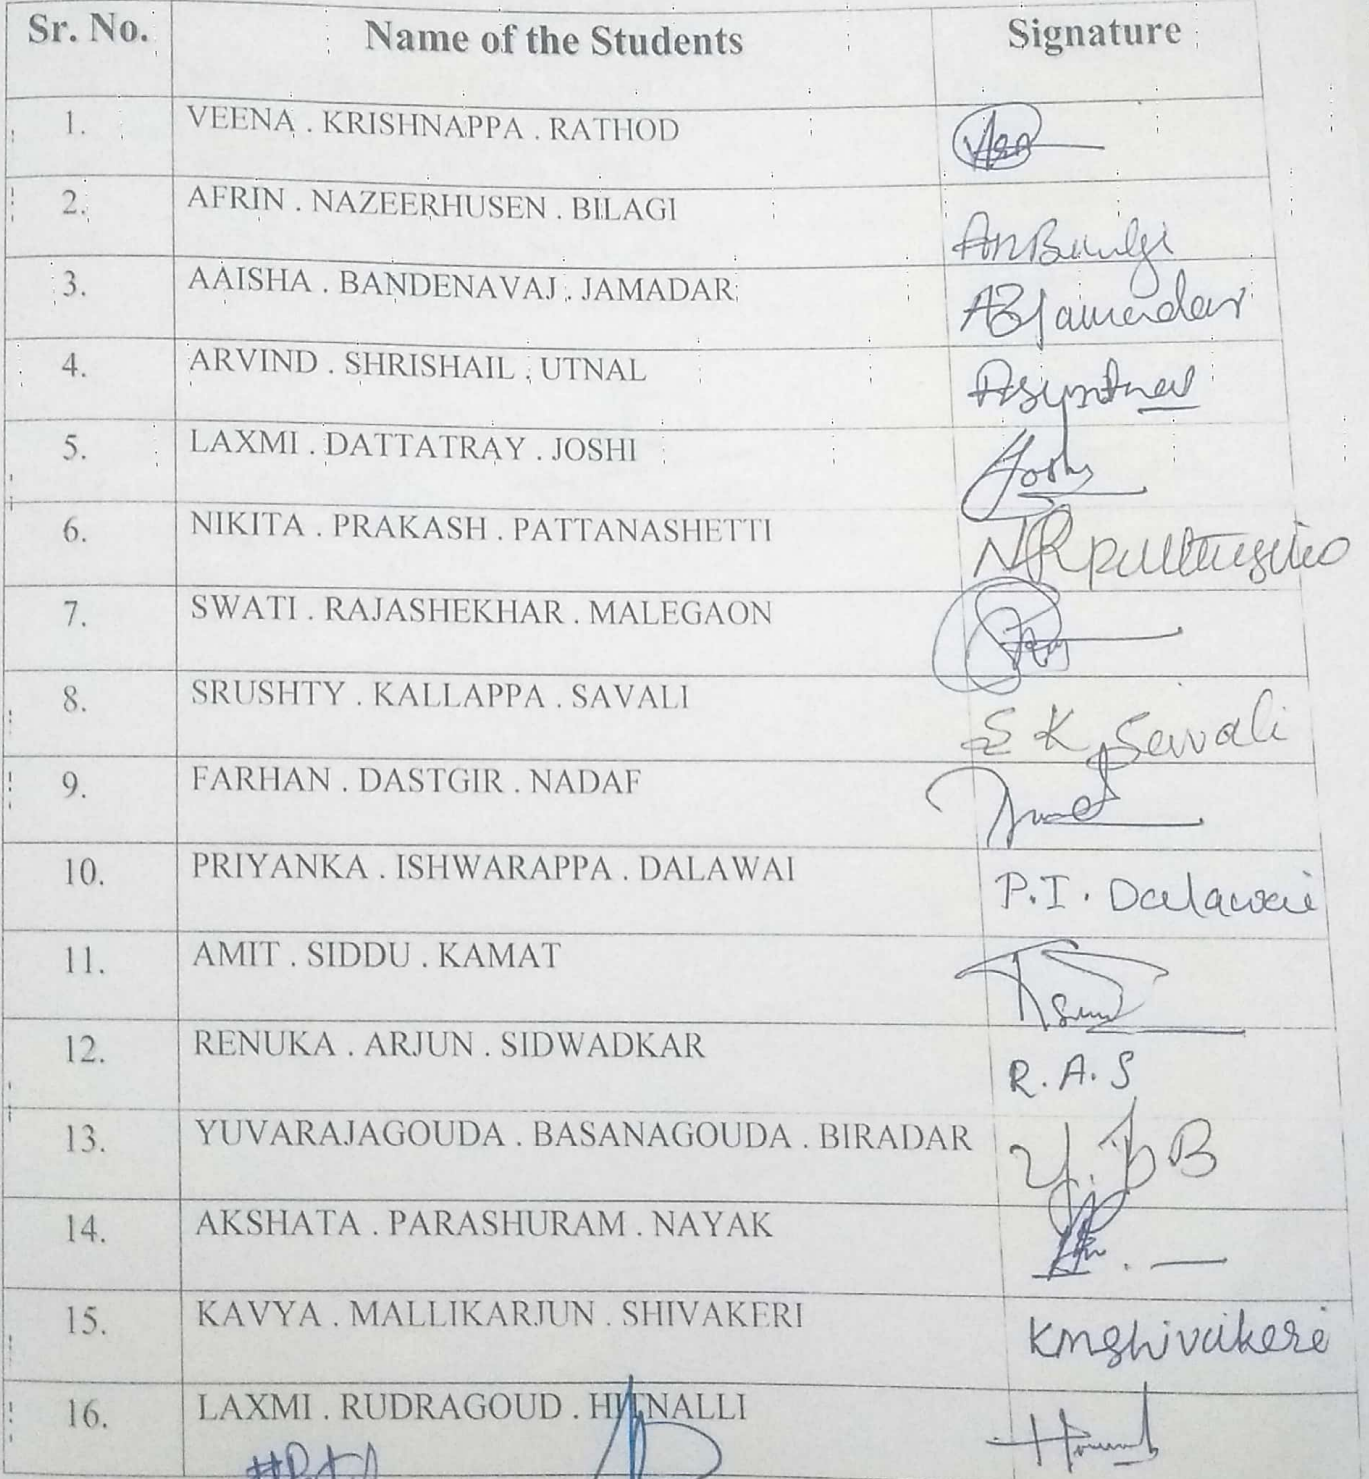 Sr. No. Name of the Students Signature
1. VEENA . KRISHNAPPA . RATHOD
2. AFRIN . NAZEERHUSEN . BILAGI
3. AAISHA . BANDENAVAJ . JAMADAR ABJamadar
4. ARVIND . SHRISHAIL . UTNAL
5. LAXMI . DATTATRAY . JOSHI Joshi
6. NIKITA . PRAKASH . PATTANASHETTI
7. SWATI . RAJASHEKHAR . MALEGAON
8. SRUSHTY . KALLAPPA . SAVALI S K Savali
9. FARHAN . DASTGIR . NADAF
10. PRIYANKA . ISHWARAPPA . DALAWAI P.I. Dalawai
11. AMIT . SIDDU . KAMAT
12. RENUKA . ARJUN . SIDWADKAR R.A.S
13. YUVARAJAGOUDA . BASANAGOUDA . BIRADAR Y.B B
14. AKSHATA . PARASHURAM . NAYAK
15. KAVYA . MALLIKARJUN . SHIVAKERI KMShivakeri
16. LAXMI . RUDRAGOUD .